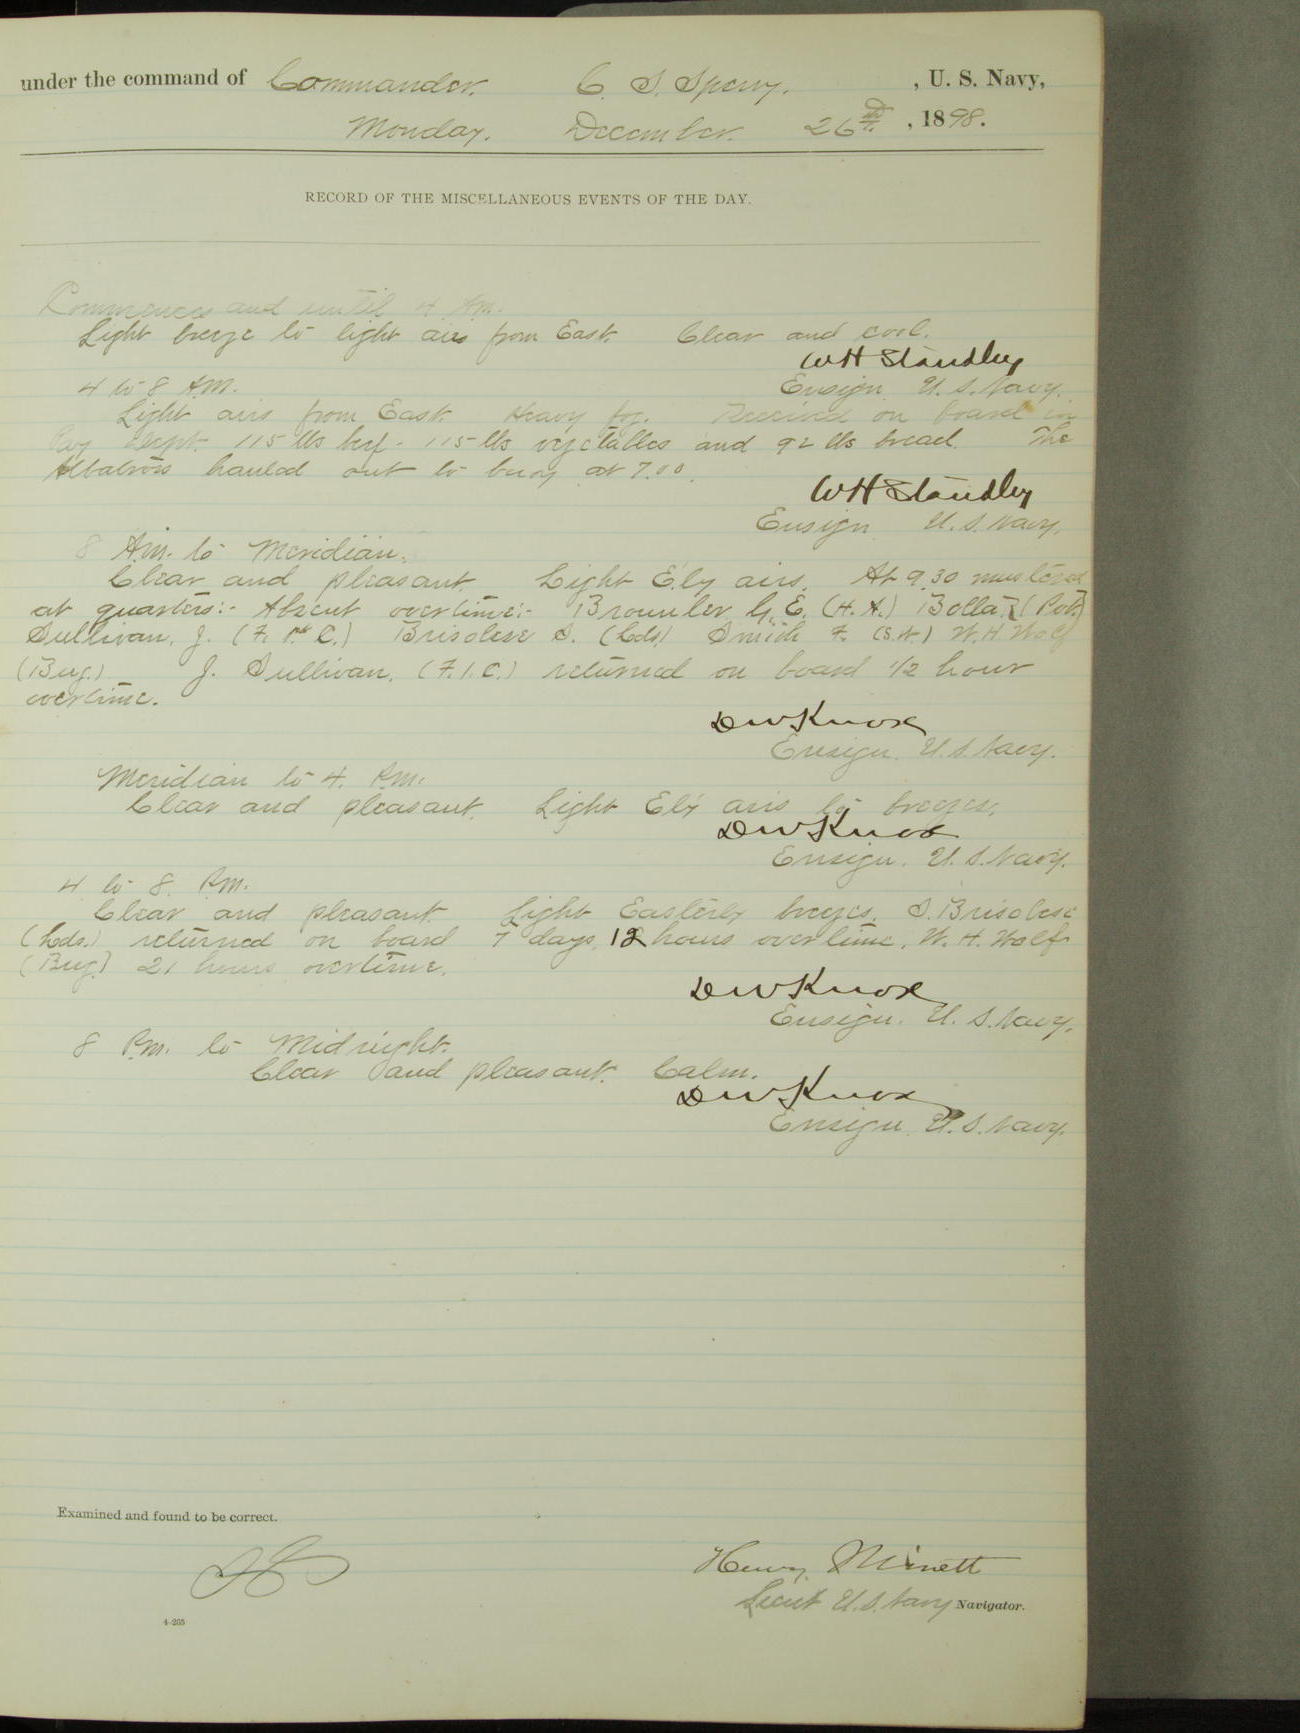 under the command of Commander. C. S. Sperry. , U. S. Navy,
Monday. December. 26th. , 1898.
RECORD OF THE MISCELLANEOUS EVENTS OF THE DAY.
Commences and until 4 Am.
Light breeze to light airs from East. Clear and cool.
WH Standley
Ensign U. S. Navy.
4 to 8 A.M.
Light airs from East. Heavy fog. Received on board in
Pay Dept. 115 lbs beef - 115 lbs vegetables and 92 lbs bread. The
Albatross hauled out to buoy at 7.00.
WH Standley
Ensign. U. S. Navy.
8 A.m. to Meridian.
Clear and pleasant. Light E'ly airs. At 9.30 mustered
at quarters:- Absent overtime:- G. E. (H. A.)
Sullivan, J. (F. 1st C.) Brisolese S. (Lds.) Smith F. (S.W.) W. H. Wolf
(Bug.) J. Sullivan, (F.1.C.) returned on board 1/2 hour
overtime.
DWKnox
Ensign. U. S. Navy.
Meridian to 4. P.m.
Clear and pleasant. Light Ely airs to breezes.
DWKnox
Ensign. U. S. Navy.
4 to 8. P.m.
Clear and pleasant. Light Easterly breezes. S. Brisolese
(Lds.) returned on board 7 days 12 hours overtime. W. H. Wolf
(Bug.) 21 hours overtime.
DWKnox
Ensign. U. S. Navy.
8 P.m. to Midnight.
Clear and pleasant. Calm.
DWKnox
Ensign. U. S. Navy.
Examined and found to be correct.
Henry Minett
Lieut U. S. Navy Navigator.
4-205